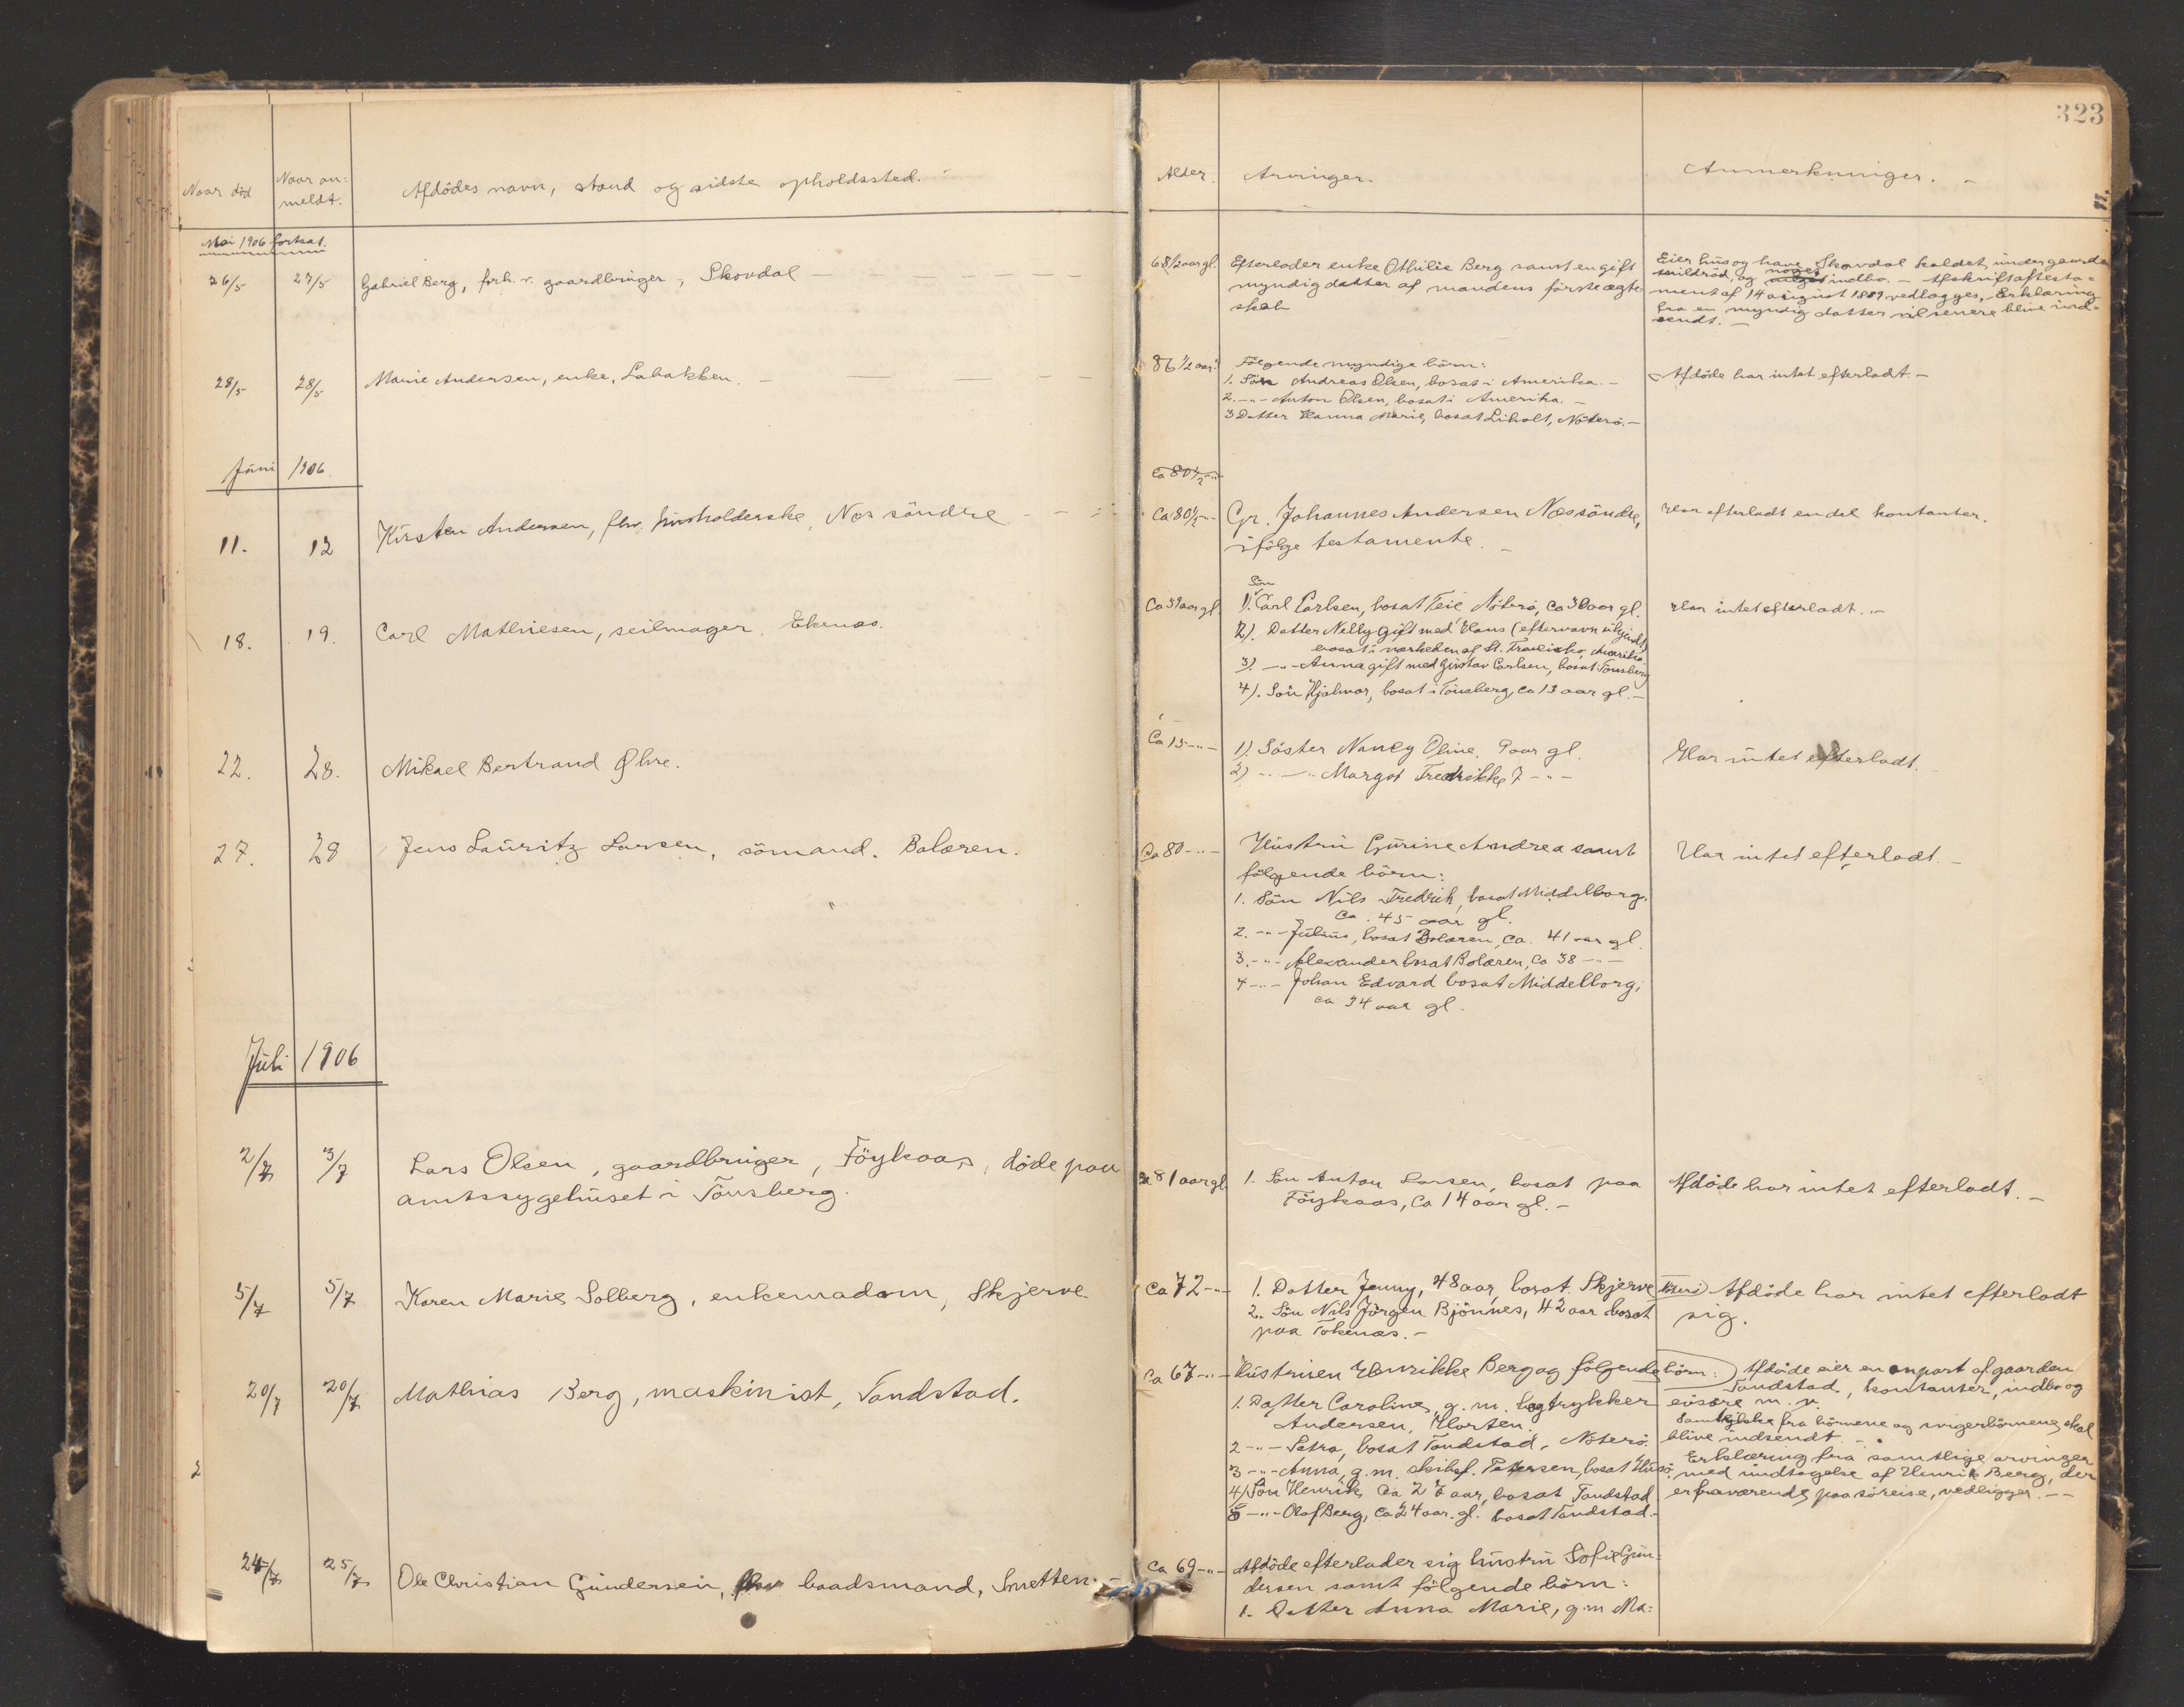 323
Naar död
Naar an=
meldt.
Afdödes navn, stand og sidste opholdssted.
Alder.
Arvinger.
Anmerkninger. -
Mai 1906 fortsat.
26/5
27/5
Gabriel Berg, forh. v. gaardbruger, Skovdal
68 1/2 aar gl.
Efterlader enke Othilie Berg samt en gift
myndig datter af mandens förste ægte-
skab
Eier hus og have Skovdal kaldet, under gaarden
og noget indbo. - Afskrift af testa=
ment af 14 august 1889 vedlægges, Erklæring
fra en myndig datter vil senere blive ind=
sendt. -
28/5
28/5
Marie Andersen, enke, Labakken. -
86 1/2 aar
Fölgende myndige börn:
1. Sön Andreas Olsen, bosat i Amerika. -
2. -"- Anton Olsen, bosat i Amerika. -
3 Datter Hanna Marie, bosat Liholt, Nöterö. -
Afdöde har intet efterladt. -
Juni 1906.
ca 80 1/2 -"-
11.
12
Kirsten Andersen, fhv. husholderske, Nes söndre
Ca 80 1/2 -"-
Gr. Johannes Andersen Nes söndre,
ifölge testamente. -
Har efterladt en del kontanter.
18.
19.
Carl Mathiesen, seilmager, Ekenæs.
Ca 59 aar gl.
Sön
1). Carl Carlsen, bosat Teie Nöterö, ca 30 aar gl.
2). Datter Nelly gift med Hans (efternavn ukjendt)
bosat i nærheden af St. Francisko, Amerika.
3). -"- Anna gift med Gustav Carlsen, bosat Tönsberg
4). Sön Hjalmar, bosat i Tönsberg, ca 13 aar gl. -
Har intet efterladt. -
22.
28.
Mikael Bertrand Øhre.
Ca 15 -"-
1). Söster Nancy Oline 9 aar gl.
2) -"- Margot Fredrikke 7 -"-
Har intet efterladt.
27.
28
Jens Lauritz Larsen, sömand. Bolæren.
Ca 80 -"-
Hustru Gurine Andrea samt
fölgende börn:
1. Sön Nils Fredrik, bosat Middelborg,
ca. 45 aar gl.
2. -"- Julius, bosat Bolæren, ca. 41 aar gl.
3. -"- Alexander bosat Bolæren, ca 38 -"-
4 -"- Johan Edvard bosat Middelborg,
ca 34 aar gl.
Har intet efterladt. -
Juli 1906
2/7
3/7
Lars Olsen, gaardbruger, Föykaas, döde paa
amtssygehuset i Tönsberg.
ca 81 aar gl
1. Sön Anton Larsen, bosat paa
Föykaas, ca 14 aar gl. -
Afdöde har intet efterladt. -
5/7
5/7
Karen Marie Solberg, enkemadam, Skjerve.
Ca 72 -"-
1. Datter Jenny, 48 aar, bosat Skjerve
2. Sön Nils Jörgen Bjönnes, 42 aar bosat
paa Tokenæs. -
Afdöde har intet efterladt
sig.
20/7
20/7
Mathias Berg, maskinist, Tandstad.
Ca 67 -"-
Hustruen Henrikke Berg og fölgende börn:
1. Datter Caroline, g. m. bogtrykker
Andersen, Horten.
2 -"- Petra, bosat Tandstad, Nöterö.
3 -"- Anna, g. m. skibsf. Petersen, bosat Husö.
4) Sön Henrik, ca 27 aar, bosat Tandstad
5 -"- Olaf Berg, ca 24 aar. gl. bosat Tandstad. -
Afdöde eier en anpart af gaarden
Tandstad, kontanter, indbo og
lösöre m. v.
Samtykke fra börnene og svigerbörnene skal
blive indsendt. -
Erklæring fra samtlige arvinger
med undtagelse af Henrik Berg, der
er fraværende paa söreise, vedligger. -
24/7
25/7
Ole Christian Gundersen, fhv baadsmand, Smetten. -
Ca 69 -"-
Afdöde efterlader sig hustru Sofie Gun-
dersen samt fölgende börn:
1. Datter Anna Marie, g. m Ma=